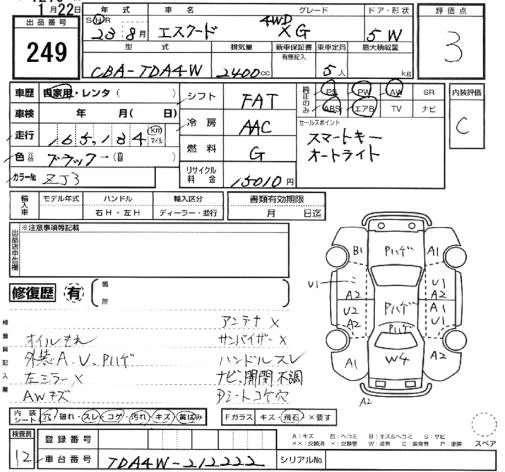 1月22日
出品番号
249
年式 車名 グレード ドア・形状 評価点
23年8月 エスクード 4WD XG 5W 3
型式 排気量 新車保証書 乗車定員 最大積載量
有無記入
CBA-TDA4W 2400cc 5人 kg
車歴 自家用・レンタ( )
シフト FAT
純正のみ PS PW AW SR
ABS エアB TV ナビ
内装評価 C
車検 年 月( 日)
冷房 AAC
セールスポイント
スマートキー
オートライト
走行 165,184 km マイル
燃料 G
色 ブラック→
リサイクル料金 15010円
カラーNo ZJ3
輸入車 モデル年式 ハンドル 輸入区分 書類有効期限
右H・左H ディーラー・並行 月 日迄
※注意事項等記載
出品店申告欄
修復歴 有 箇所
B1 Pハゲ A1
U1 A2 U1
A2
U2 Pハゲ A1
A2 U1
Pハゲ
A1 W4 A1
A2
検査員記入欄
アンテナ×
オイルもれ サンバイザー×
外装A、U、Pハゲ ハンドルスレ
左ミラー× ナビ、開閉不調
AWキズ Dシートコゲ穴
内装シート 穴・破れ・スレ・コゲ・汚れ・キズ・黄ばみ
Fガラス キズ・飛石・×要す
スペア
検査員 12
登録番号
車台番号 TDA4W-212222 シリアルNo